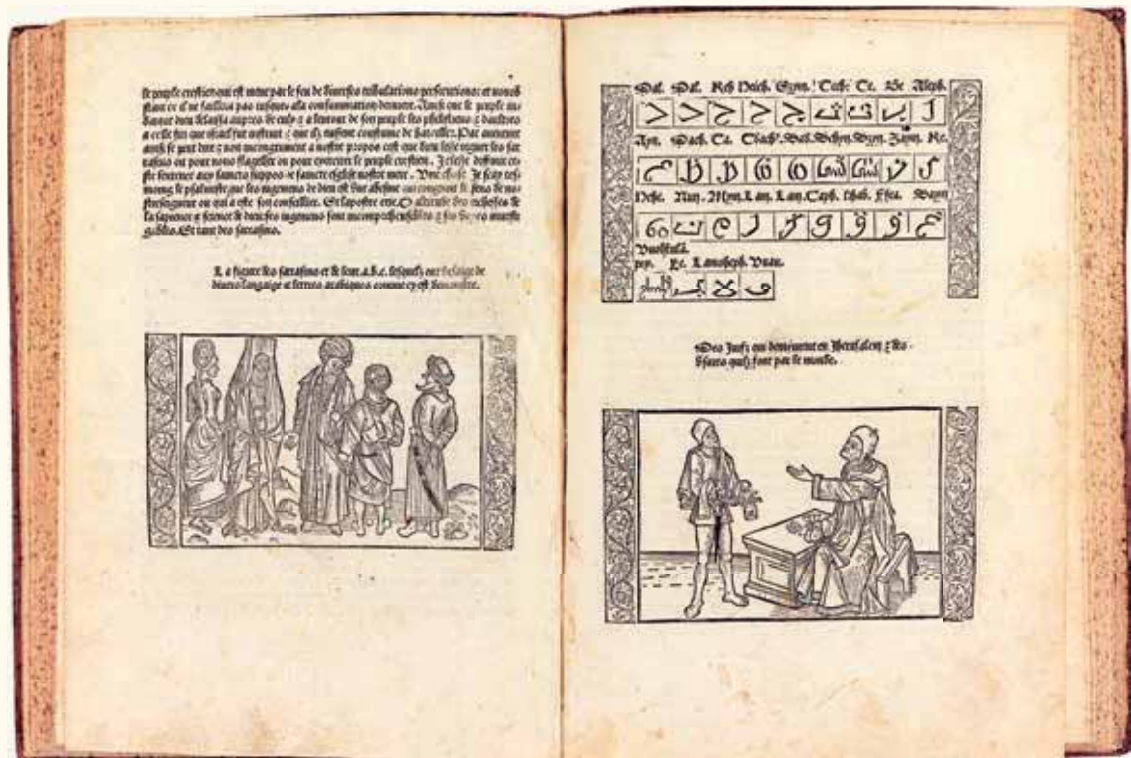 le peuple crestien qui est mene par le feu de diverses tribulations persecutions: et nonob
stant ce il ne faillira pas iusques ala consummation derniere. Ainsi que le peuple iu
daique dieu delaissa aupres de z a lentour de son peuple les philistins z daultres
a celle fin que israel fut instruit z que ilz eussent coustume de batailler. Par
ainsi se peut dire z non incongrument a nostre propos cest que dieu laisse les sar
rasins ou pour nous flageller ou pour exercer le peuple crestien. Je laisse ce
ste sentence aux saincts z a saincte esglise nostre mere. Une chose Je scay tes
moing le psalmiste que les iugemens de dieu est une abisme qui congnoit le sens de no
streseigneur ou qui a este son conseillier. Et lapostre crie. O altitude des richesses de
la sapience z science de dieu ses iugemens sont incomprehensibles z ses voyes investi
gables. Et tant des sarrasins.
La figure des sarrasins et de leur a.b.c. lesquelz ont usaige de
divers langaige et lettres arabiques comme cy est demonstre.
Dal. Dal. Reh Heich. Gym. Tech: Te. Be Aleph.
Ayn. Dach. Ta. Zayn. Re.
Hehe. Nun. Mym. Lam. Lam. Caph. Vayn
Lamoleph. Vuau.
Des Juifz qui demeurent en Jherusalem z des
usures quilz font par le monde.